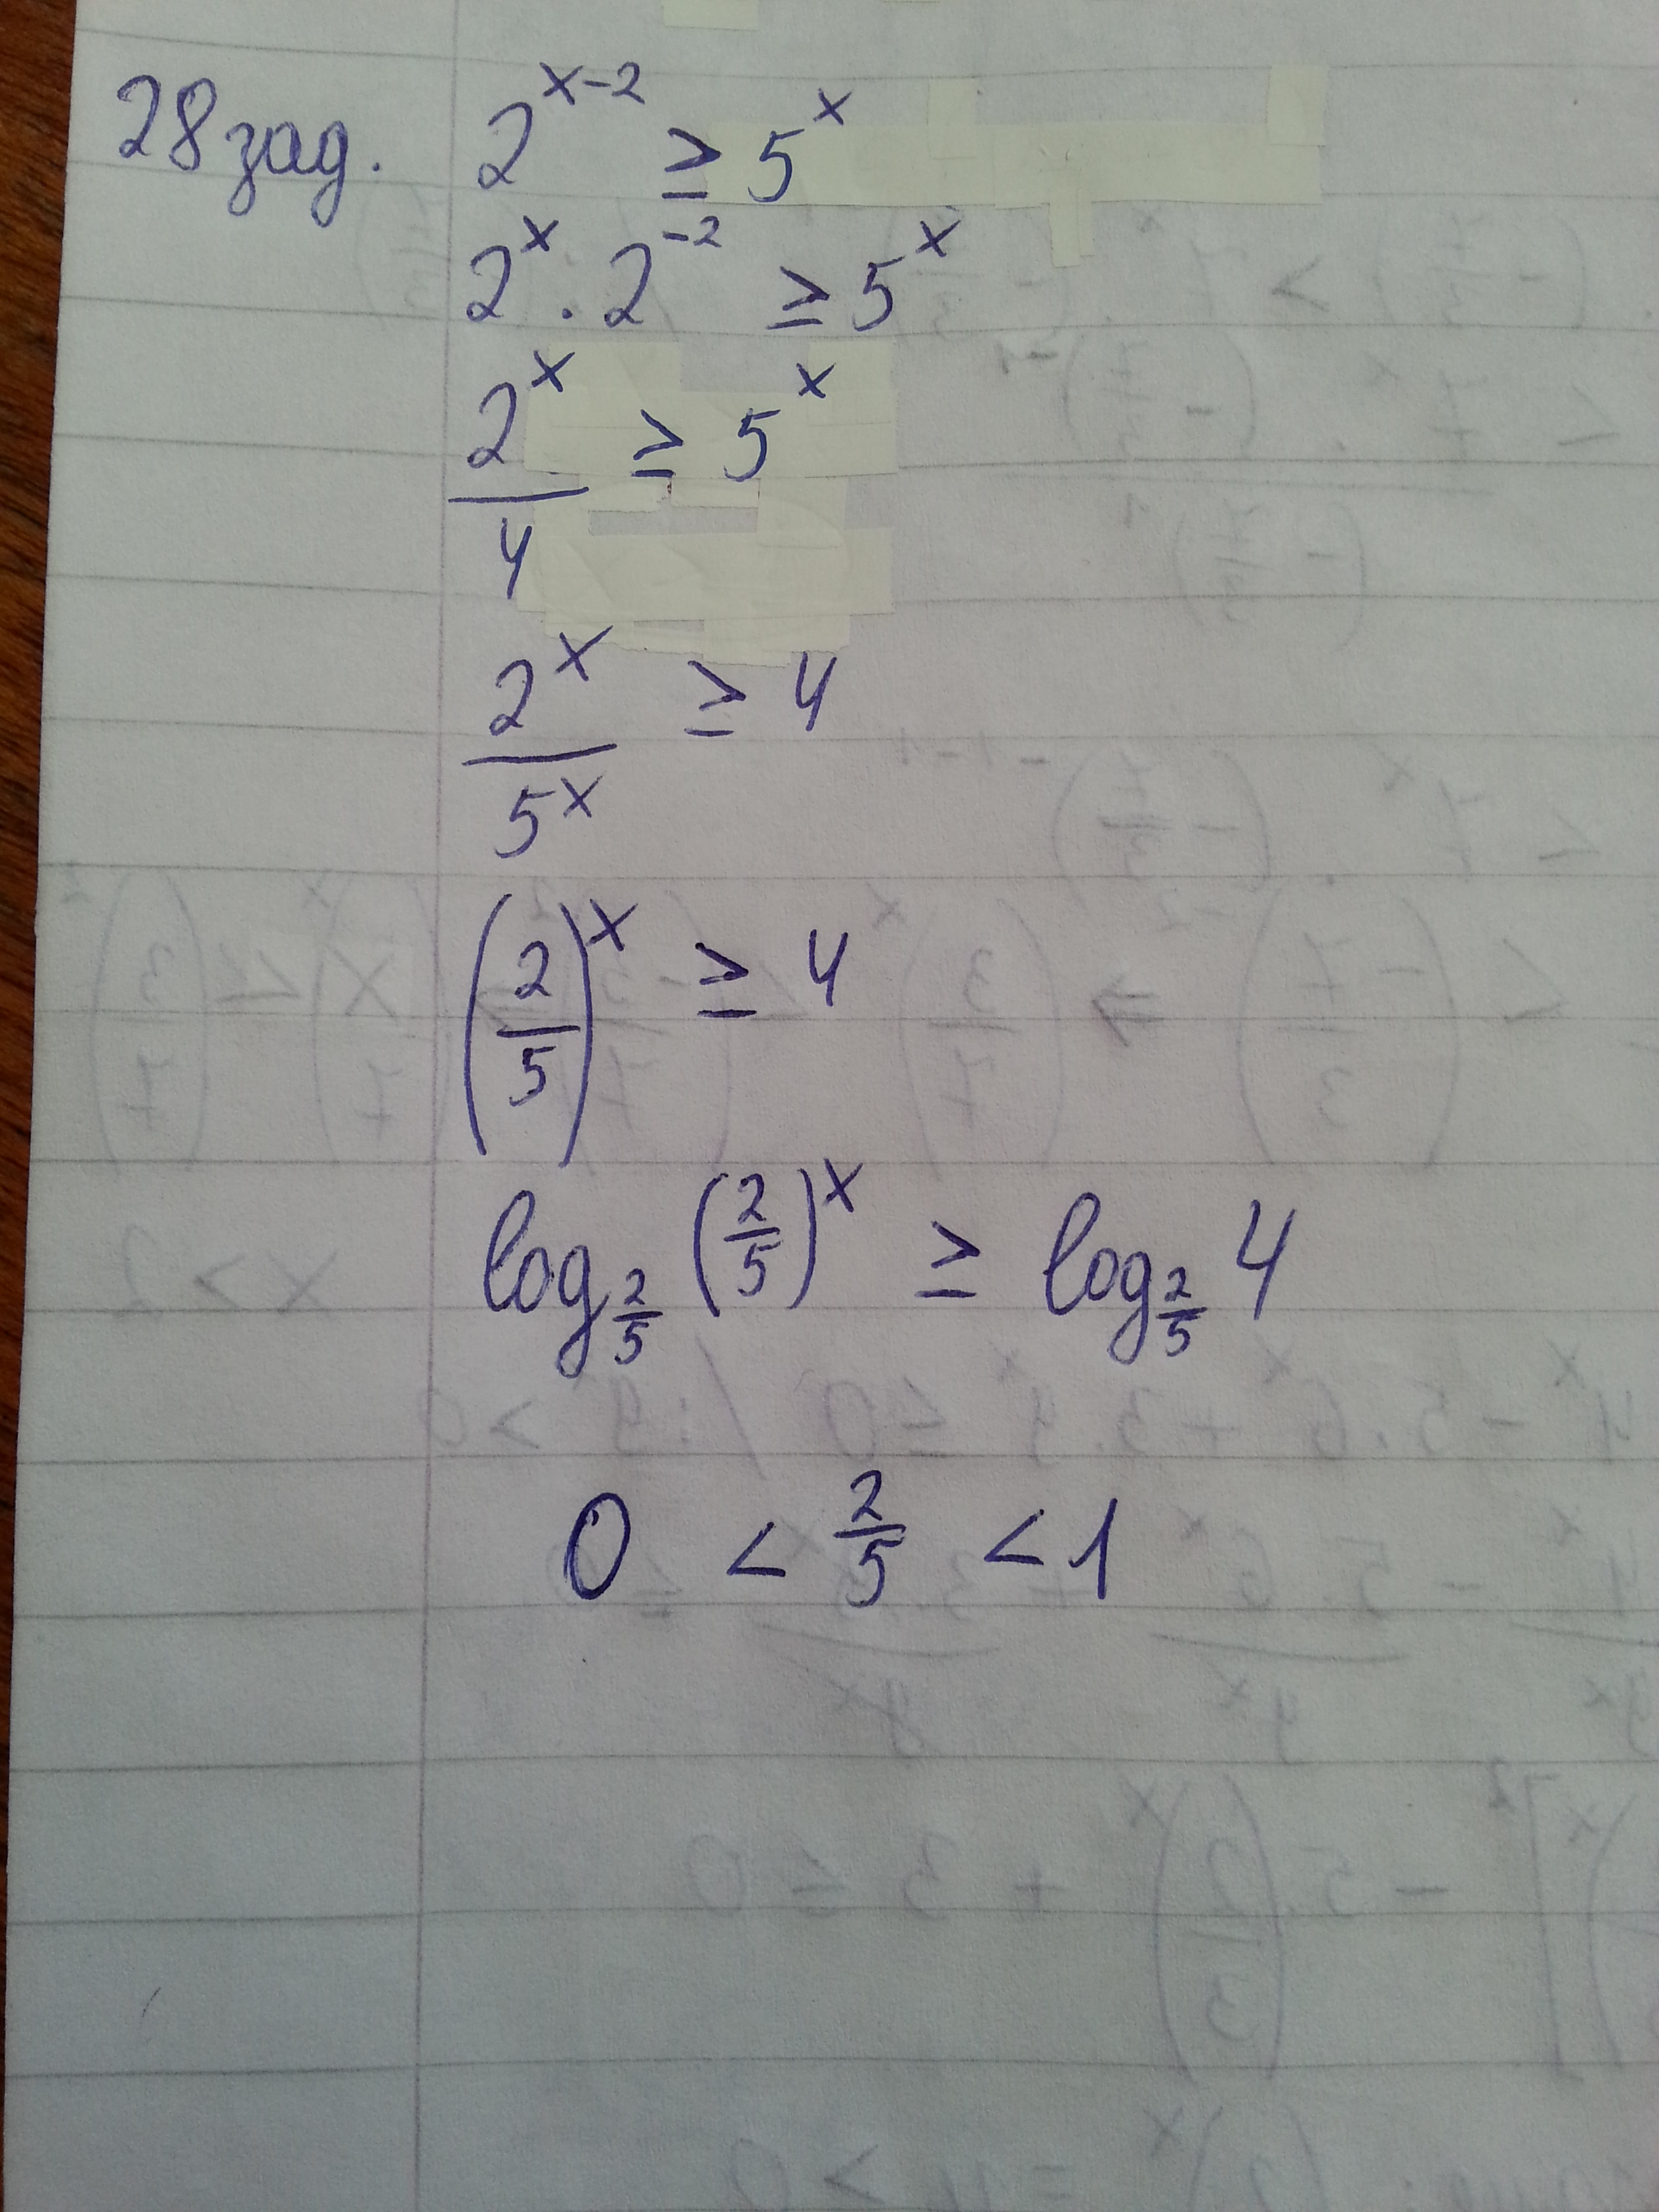 28 зад. 2^(x-2) ≥ 5^x
2^x . 2^(-2) ≥ 5^x
2^x/4 ≥ 5^x
2^x/5^x ≥ 4
(2/5)^x ≥ 4
log_(2/5) (2/5)^x ≥ log_(2/5) 4
0 < 2/5 < 1